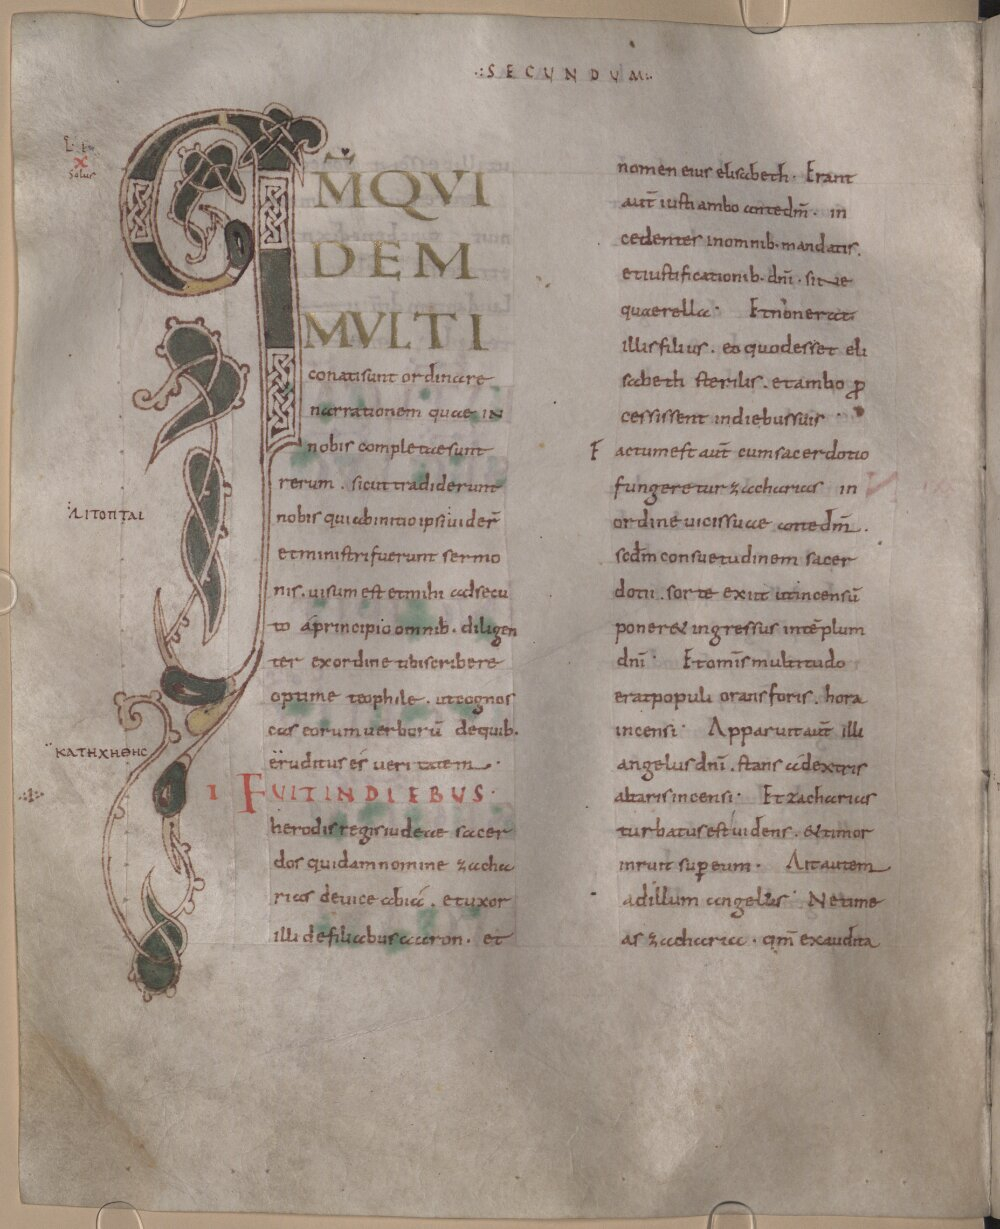 ·:SECUNDUM:·
QM QVI
DEM
MVLTI
conatisunt ordinare
narrationem quae IN
nobis completaesunt
rerum . sicut tradiderunt
nobis quiabinitio ipsi uider̄
et ministri fuerunt sermo
nis . uisum est et mihi adsecu
to a principio omnib . diligen
ter exordine tibi scribere
optime teophile . ut cognos
cas eorum uerborū dequib.
eruditus es ueritatem .
I FUIT IN DIEBUS ·
herodis regis iudeae sacer
dos quidam nomine zacha
rias deuice abia . et uxor
illi defiliabus aaron . et
nomen eius elisabeth · Erant
aut̄ iusti ambo ante dm̄ · in
cedentes in omnib · mandatis .
et iustificationib · dn̄i · sine
quaerella · Et non erat
illis filius . eo quod esset eli
sabeth sterilis . et ambo ꝓ
cessissent in diebus suis ·
F actum est aut̄ cum sacerdotio
fungeretur zacharias in
ordine uicis suae ante dm̄ .
scdm̄ consuetudinem sacer
dotii . sorte exiit ut incensū
poner& ingressus in tēplum
dn̄i · Et omīs multitudo
erat populi orans foris . hora
incensi · Apparuit aut̄ illi
angelus dn̄i . stans addextris
altaris incensi · Et zacharias
turbatus est uidens . &timor
inruit super eum · Ait autem
ad illum angelus · Ne time
as zacharia . qm̄ exaudita
salus
ΑΙΤΟΠΤΑΙ
ΚΑΤΗΧΗΘΗC